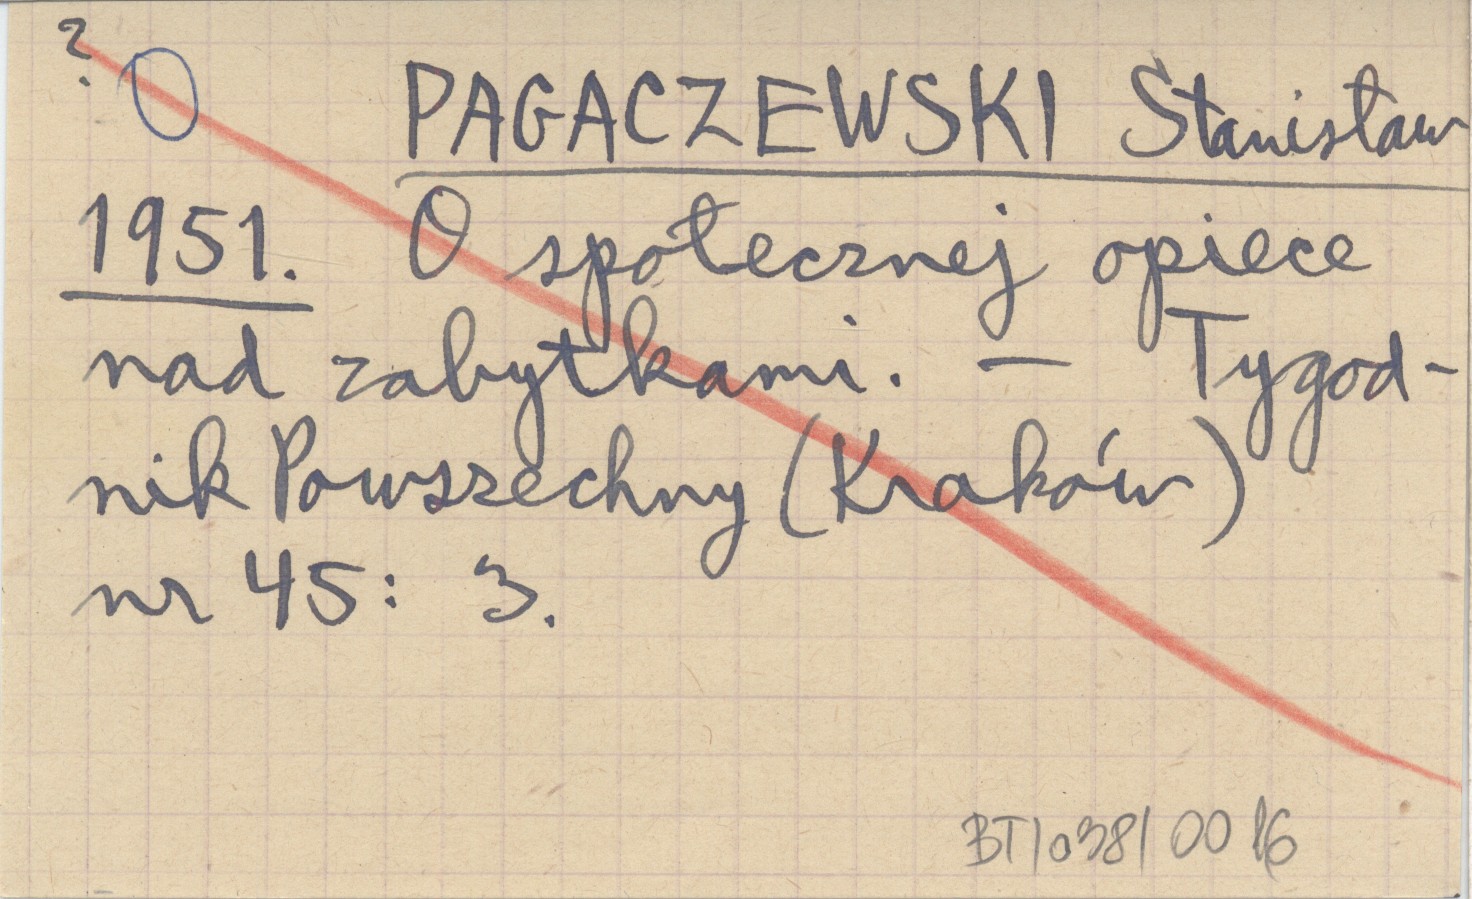 ?
O PAGACZEWSKI Stanisław
1951. O społecznej opiece
nad zabytkami. — Tygod-
nik Powszechny (Kraków)
nr 45: 3.
BT/038/0016